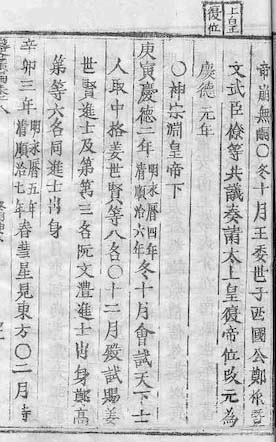 上皇
復位
帝崩無嗣〇冬十月王委世子西國公鄭柞
文武臣僚等共議奏請太上皇復帝位改元為
慶德元年
〇神宗淵皇帝下
庚寅慶德二年明永曆四年清順治六年冬十月會試天下士
人取中格姜世賢等八名〇十二月殿試賜姜
世賢進士及第第三名阮文灃進士出身鄭高
第等六名同進士出身
辛卯三年明永曆五年清順治七年春彗星見東方〇二月寺